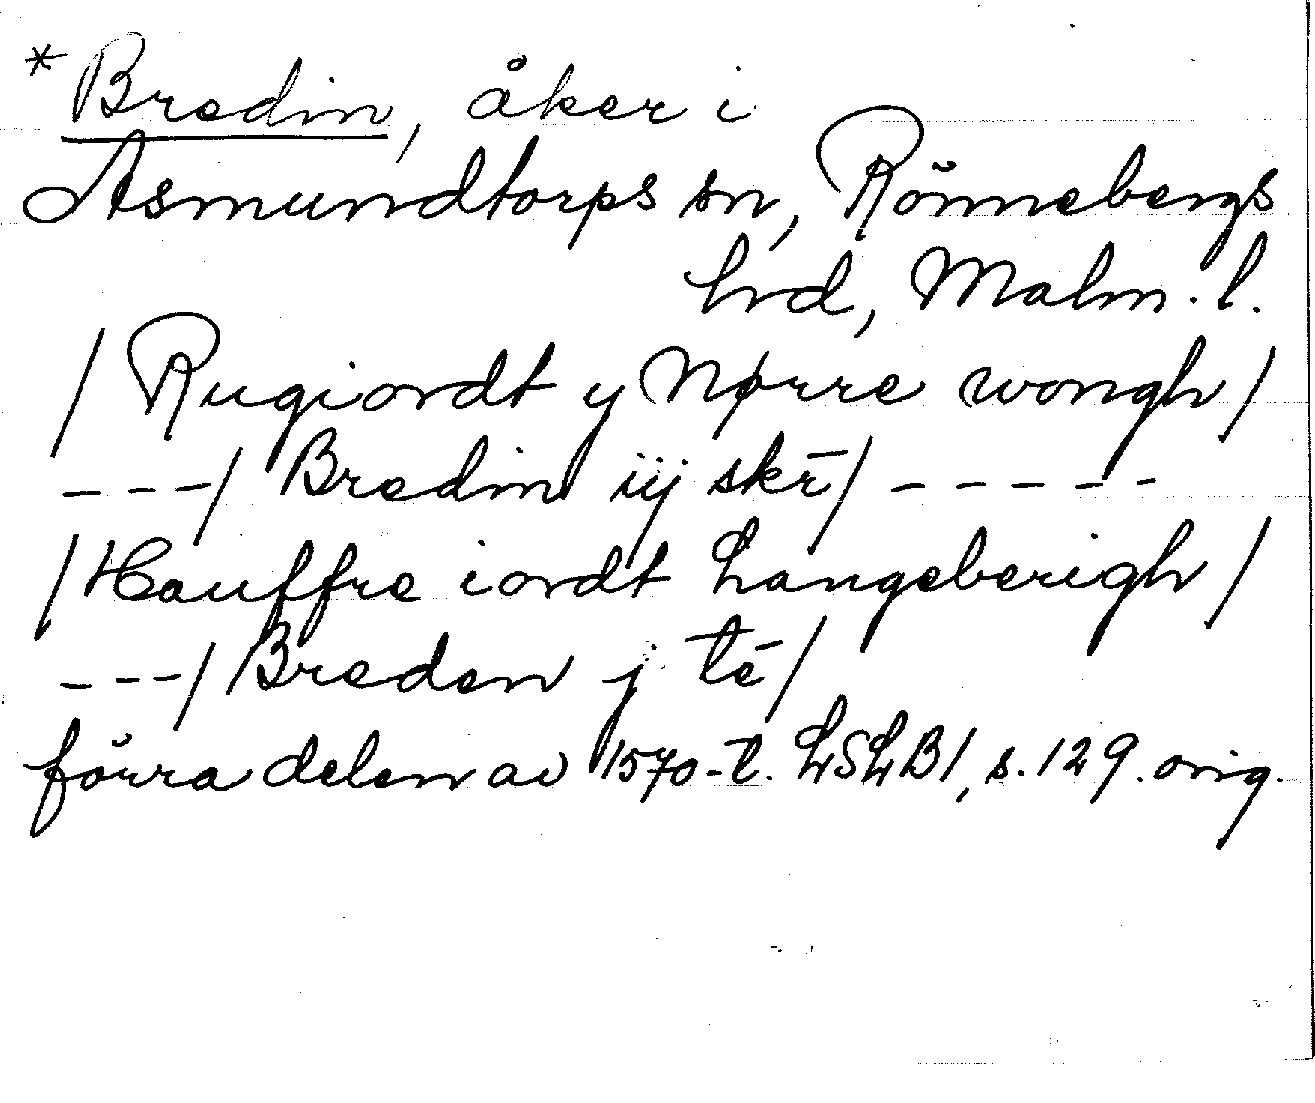 *Bredin, åker i
Asmundtorps sn, Rönnebergs
hrd, Malm. l.
/ Rugiordt y Nørre wongh /
---/ Bredin iij skr̄ / -----
/ Hauffre iordt Langeberigh /
---/ Breden j tē /
förra delen av 1570-t. LSLB1, s. 129. orig.